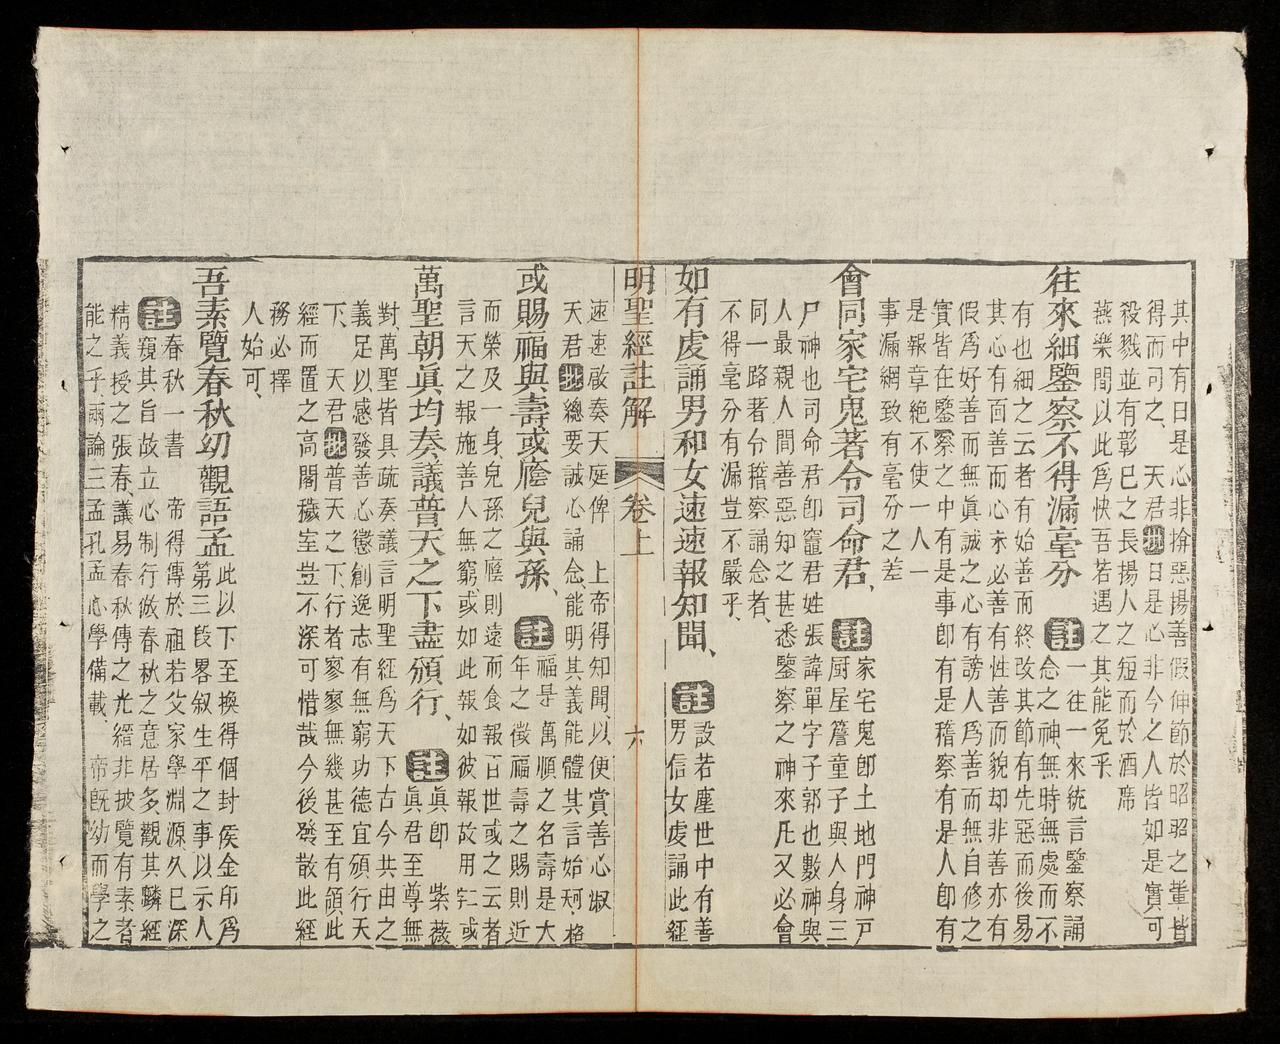 其中有日是心非揜惡揚善假伸節於昭昭之輩皆
得而司之、　天君批曰是心非今之人皆如是實可
殺戮並有彰已之長揚人之短而於酒席
燕樂間以此爲快吾若遇之其能免乎
往來細鑒察不得漏毫分
註一往一來統言鑒察誦
念之神、無時無處而不
有也細之云者有始善而終改其節有先惡而後易
其心有面善而心未必善有性善而貌却非善亦有
假爲好善而無眞誠之心有謗人爲善而無自修之
實皆在鑒察之中有是事卽有是稽察有是人卽有
是報章絶不使一人一
事漏網致有毫分之差
會同家宅鬼著令司命君、
註家宅鬼卽土地門神戸
厨屋簷童子與人身三
尸神也司命君卽竈君姓張諱單字子郭也數神與
人最親人間善惡知之甚悉鑒察之神來凡又必會
同一路著台稽察誦念者、
不得毫分有漏豈不嚴乎、
如有虔誦男和女速速報知聞、
註設若塵世中有善
男信女虔誦此經
明聖經註解　卷上　六
速速啟奏天庭俾　上帝得知聞、以便賞善心淑
天君批總要誠心誦念、能明其義能體其言始珂、格
或賜福與壽或廕兒與孫、
註福是萬順之名壽是大
年之徵福壽之賜則近
而榮及一身、兒孫之廕則遠而食報百世或之云者
言天之報施善人無窮、或如此報如彼報故用字或
萬聖朝眞均奏議普天之下盡頒行、
註眞卽　紫薇
眞君至尊無
對、萬聖皆具疏奏議言明聖經爲天下古今共由之
義足以感發善心懲創逸志有無窮功德宜頒行天
下、　天君批普天之下、行者寥寥無幾甚至有領此
經而置之高閣穢室豈不深可惜哉今後發散此經
務必擇
人始可、
吾素覽春秋幼觀語孟
此以下至換得個封侯金印爲
第三段畧叙生平之事以示人
註春秋一書　帝得傳於祖若父家學淵源、久已深
窺其旨故立心制行倣春秋之意居多觀其麟經
精義授之張春、議易春秋傳之光縉非披覽有素者
能之乎、兩論三孟孔孟心學備載、帝旣幼而學之